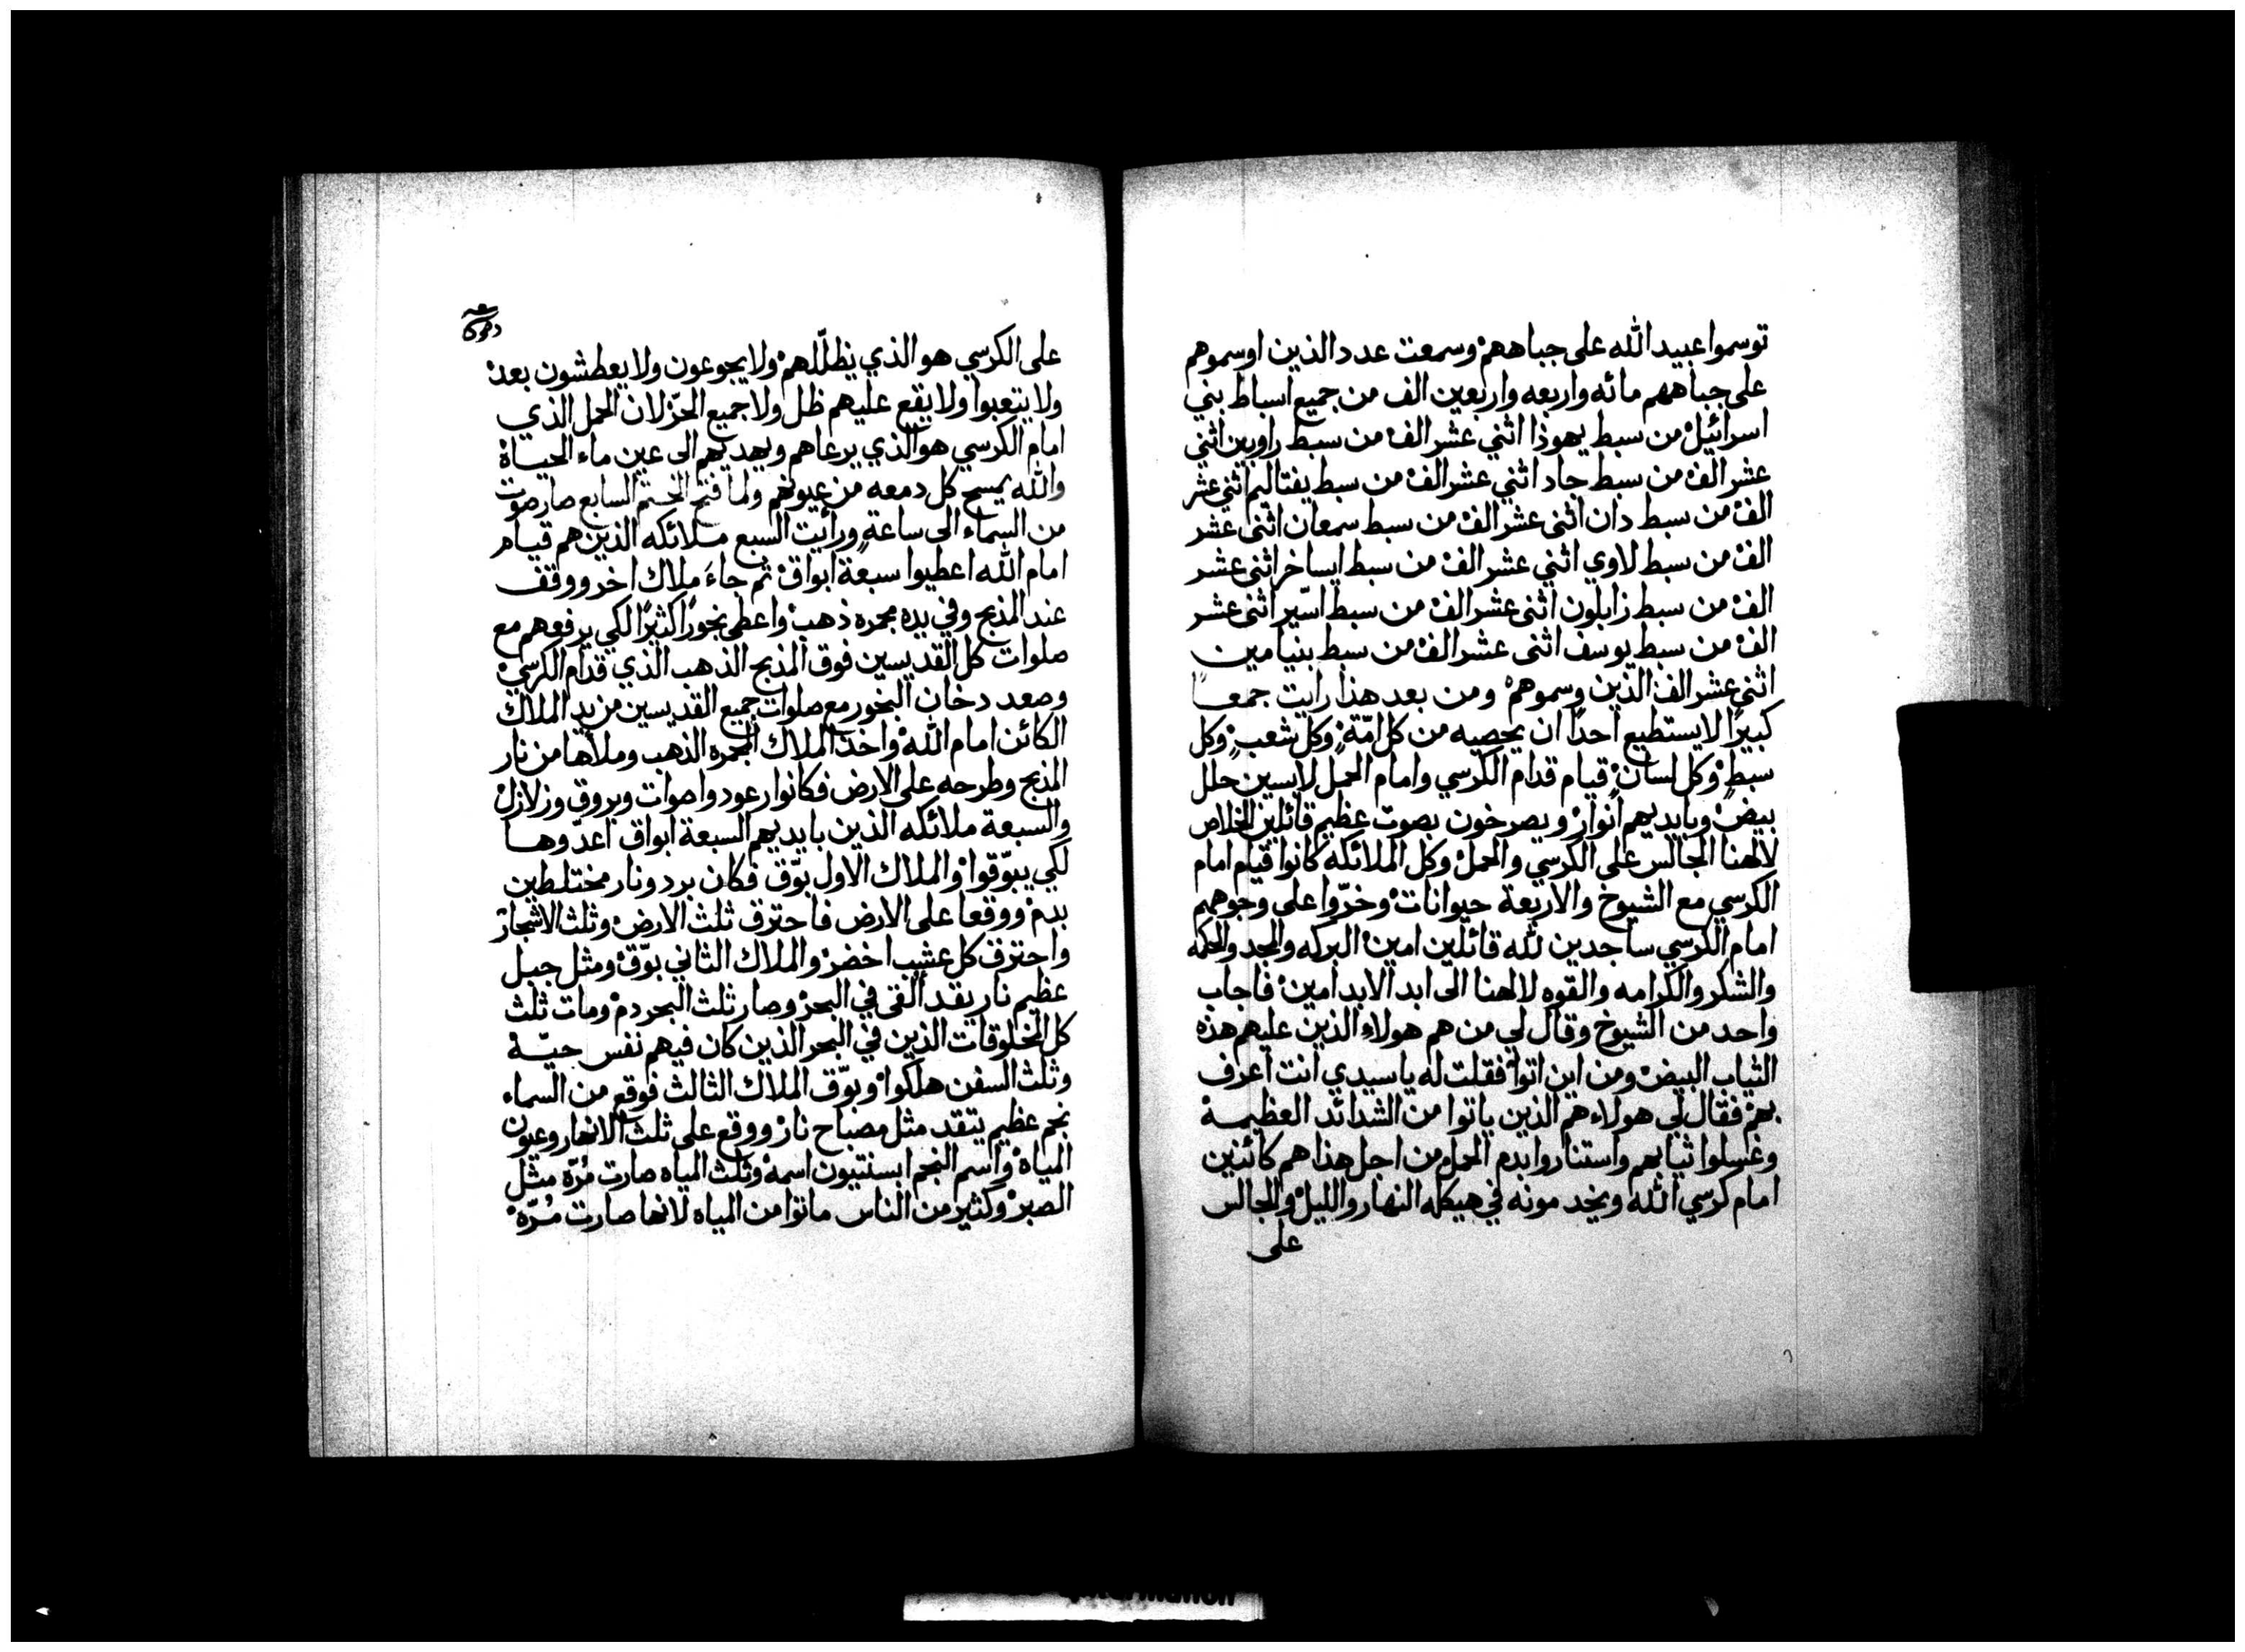 توسموا عبيد الله على جباههم وسمعت عدد الذين اوسموهم
على جباههم مائه واربعه واربعين الف من جميع اسباط بني
اسرائيل من سبط يهوذا اثني عشر الف من سبط راوبين اثني
عشر الف من سبط جاد اثني عشر الف من سبط يفتاليم اثني عشر
الف من سبط دان اثنى عشر الف من سبط سمعان اثنى عشر
الف من سبط لاوي اثني عشر الف من سبط ايساخر اثنى عشر
الف من سبط زابلون اثنى عشر الف من سبط اسّير اثنى عشر
الف من سبط يوسف اثنى عشر الف من سبط بنيامين
اثني عشر الف الذين وسموهم ومن بعد هذا رايت جمعاً
كبيرًا لا يستطيع احدًا ان يحصيه من كل امّةٍ وكل شعبٍ وكل
سبطٍ وكل لسان قيام قدام الكرسي وامام الحمل لابسين حلل
بيض وبايديهم انوار ويصرخون بصوت عظيم قائلين الخلاص
لالهنا الجالس على الكرسي والحمل وكل الملائكه كانوا قيام امام
الكرسي مع الشيوخ والاربعة حيوانات وخرّوا على وجوههم
امام الكرسي ساجدين لله قائلين امين البركه والمجد والحكمه
والشكر والكرامه والقوه لالهنا الى ابد الابد امين فاجاب
واحد من الشيوخ وقال لي من هم هولاء الذين عليهم هذه
الثياب البيض ومن اين اتوا فقلت له يا سيدي انت اعرف
بهم فقال لي هولاء هم الذين ياتوا من الشدائد العظيمة
وغسلوا ثيابهم واستناروا بدم الحمل من اجل هذا هم كائنين
امام كرسي الله ويخدمونه في هيكله النهار والليل والجالس
على
على الكرسي هو الذي يظلّلهم ولا يجوعون ولا يعطشون بعد
ولا يتعبوا ولا يقع عليهم ظل ولا جميع الحرّ لان الحمل الذي
امام الكرسي هو الذي يرعاهم ويهديهم الى عين ماء الحياة
والله يمسح كل دمعه من عيونهم ولما فتح الختم السابع صار صوت
من السماء الى ساعةٍ ورائيت السبع ملائكه الذين هم قيام
امام الله اعطيوا سبعة ابواق ثم جاءَ ملاك اخر ووقف
عند المذبح وفي يده مجمره ذهب واعطى بخورًا كثيرًا لكي يرفعهم مع
صلوات كل القديسين فوق المذبح الذهب الذي قدام الكرسي
وصعد دخان البخور مع صلوات جميع القديسين من يد الملاك
الكائن امام الله واخذ الملاك المجمره الذهب وملاها من نار
المذبح وطرحه على الارض فكانوا رعود واصوات وبروق وزلازل
والسبعة ملائكه الذين بايديهم السبعة ابواق اعدّوها
لكي يبوّقوا والملاك الاول بوّق فكان برد ونار مختلطين
بدم ووقعا على الارض فاحترق ثلث الارض وثلث الاشجار
واحترق كل عشب اخضر والملاك الثاني بوّق ومثل جبل
عظيم نار يقد القى في البحر وصار ثلث البحر دم ومات ثلث
كل المخلوقات الذين في البحر الذين كان فيهم نفس حيّة
وثلث السفن هلكوا وبوّق الملاك الثالث فوقع من السماء
نجم عظيم يتقد مثل مصباح نار ووقع على ثلث الانهار وعيون
المياه واسم النجم ابسنتيون اسمه وثلث المياه صارت مُرّه مثل
الصبر وكثير من الناس ماتوا من المياه لانها صارت مُرّه